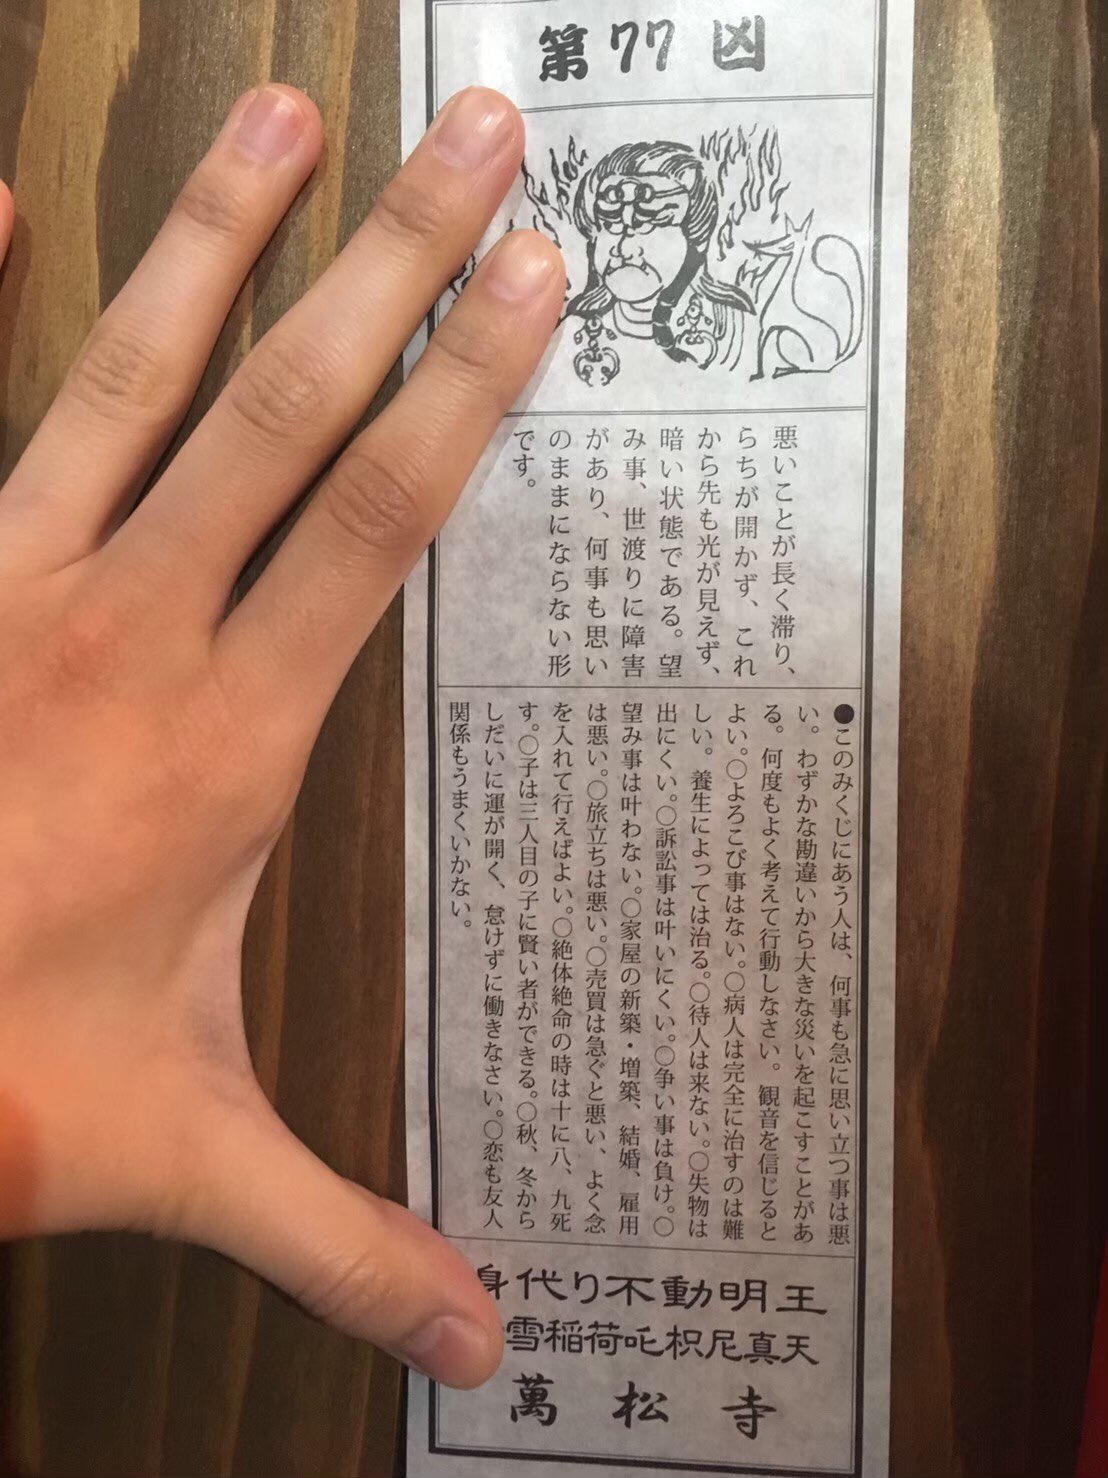 第77 凶
悪いことが長く滞り、
らちが開かず、これ
から先も光が見えず、
暗い状態である。望
み事、世渡りに障害
があり、何事も思い
のままにならない形
です。
●このみくじにあう人は、何事も急に思い立つ事は悪
い。わずかな勘違いから大きな災いを起こすことがあ
る。何度もよく考えて行動しなさい。観音を信じると
よい。○よろこび事はない。○病人は完全に治すのは難
しい。養生によっては治る。○待人は来ない。○失物は
出にくい。○訴訟事は叶いにくい。○争い事は負け。○
望み事は叶わない。○家屋の新築・増築、結婚、雇用
は悪い。○旅立ちは悪い。○売買は急ぐと悪い、よく念
を入れて行えばよい。○絶体絶命の時は十に八、九死
す。○子は三人目の子に賢い者ができる。○秋、冬から
しだいに運が開く、怠けずに働きなさい。○恋も友人
関係もうまくいかない。
身代り不動明王
雪稲荷吒枳尼真天
萬松寺